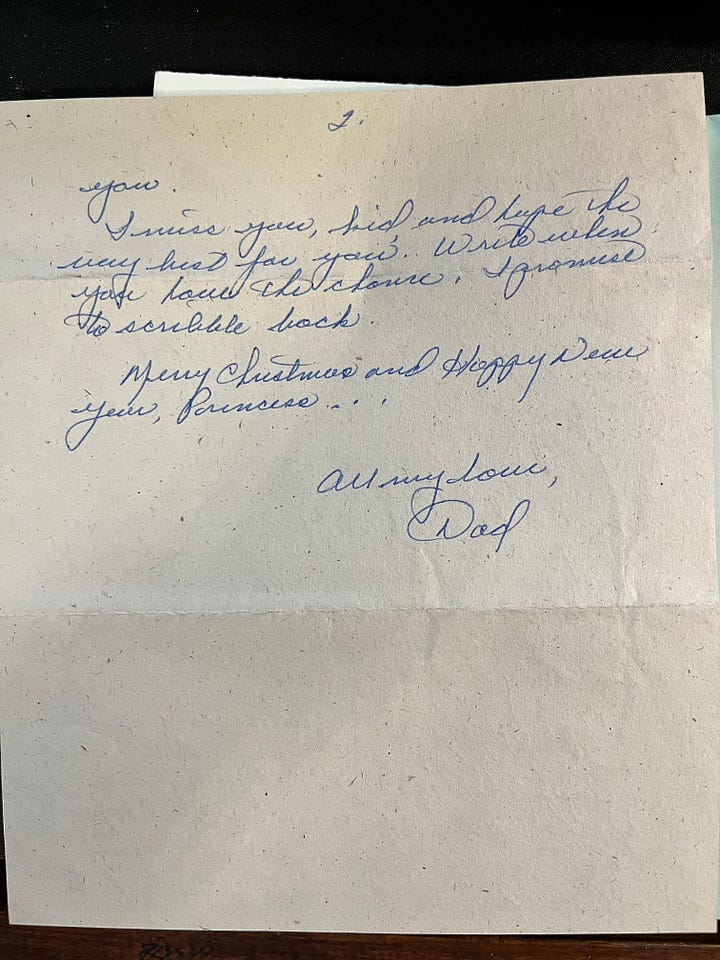 2.
you.
I miss you, kid, and hope the
very best for you. Write when
you have the chance. I promise
to scribble back.
Merry Christmas and Happy New
Year, Princess...
All my love,
Dad